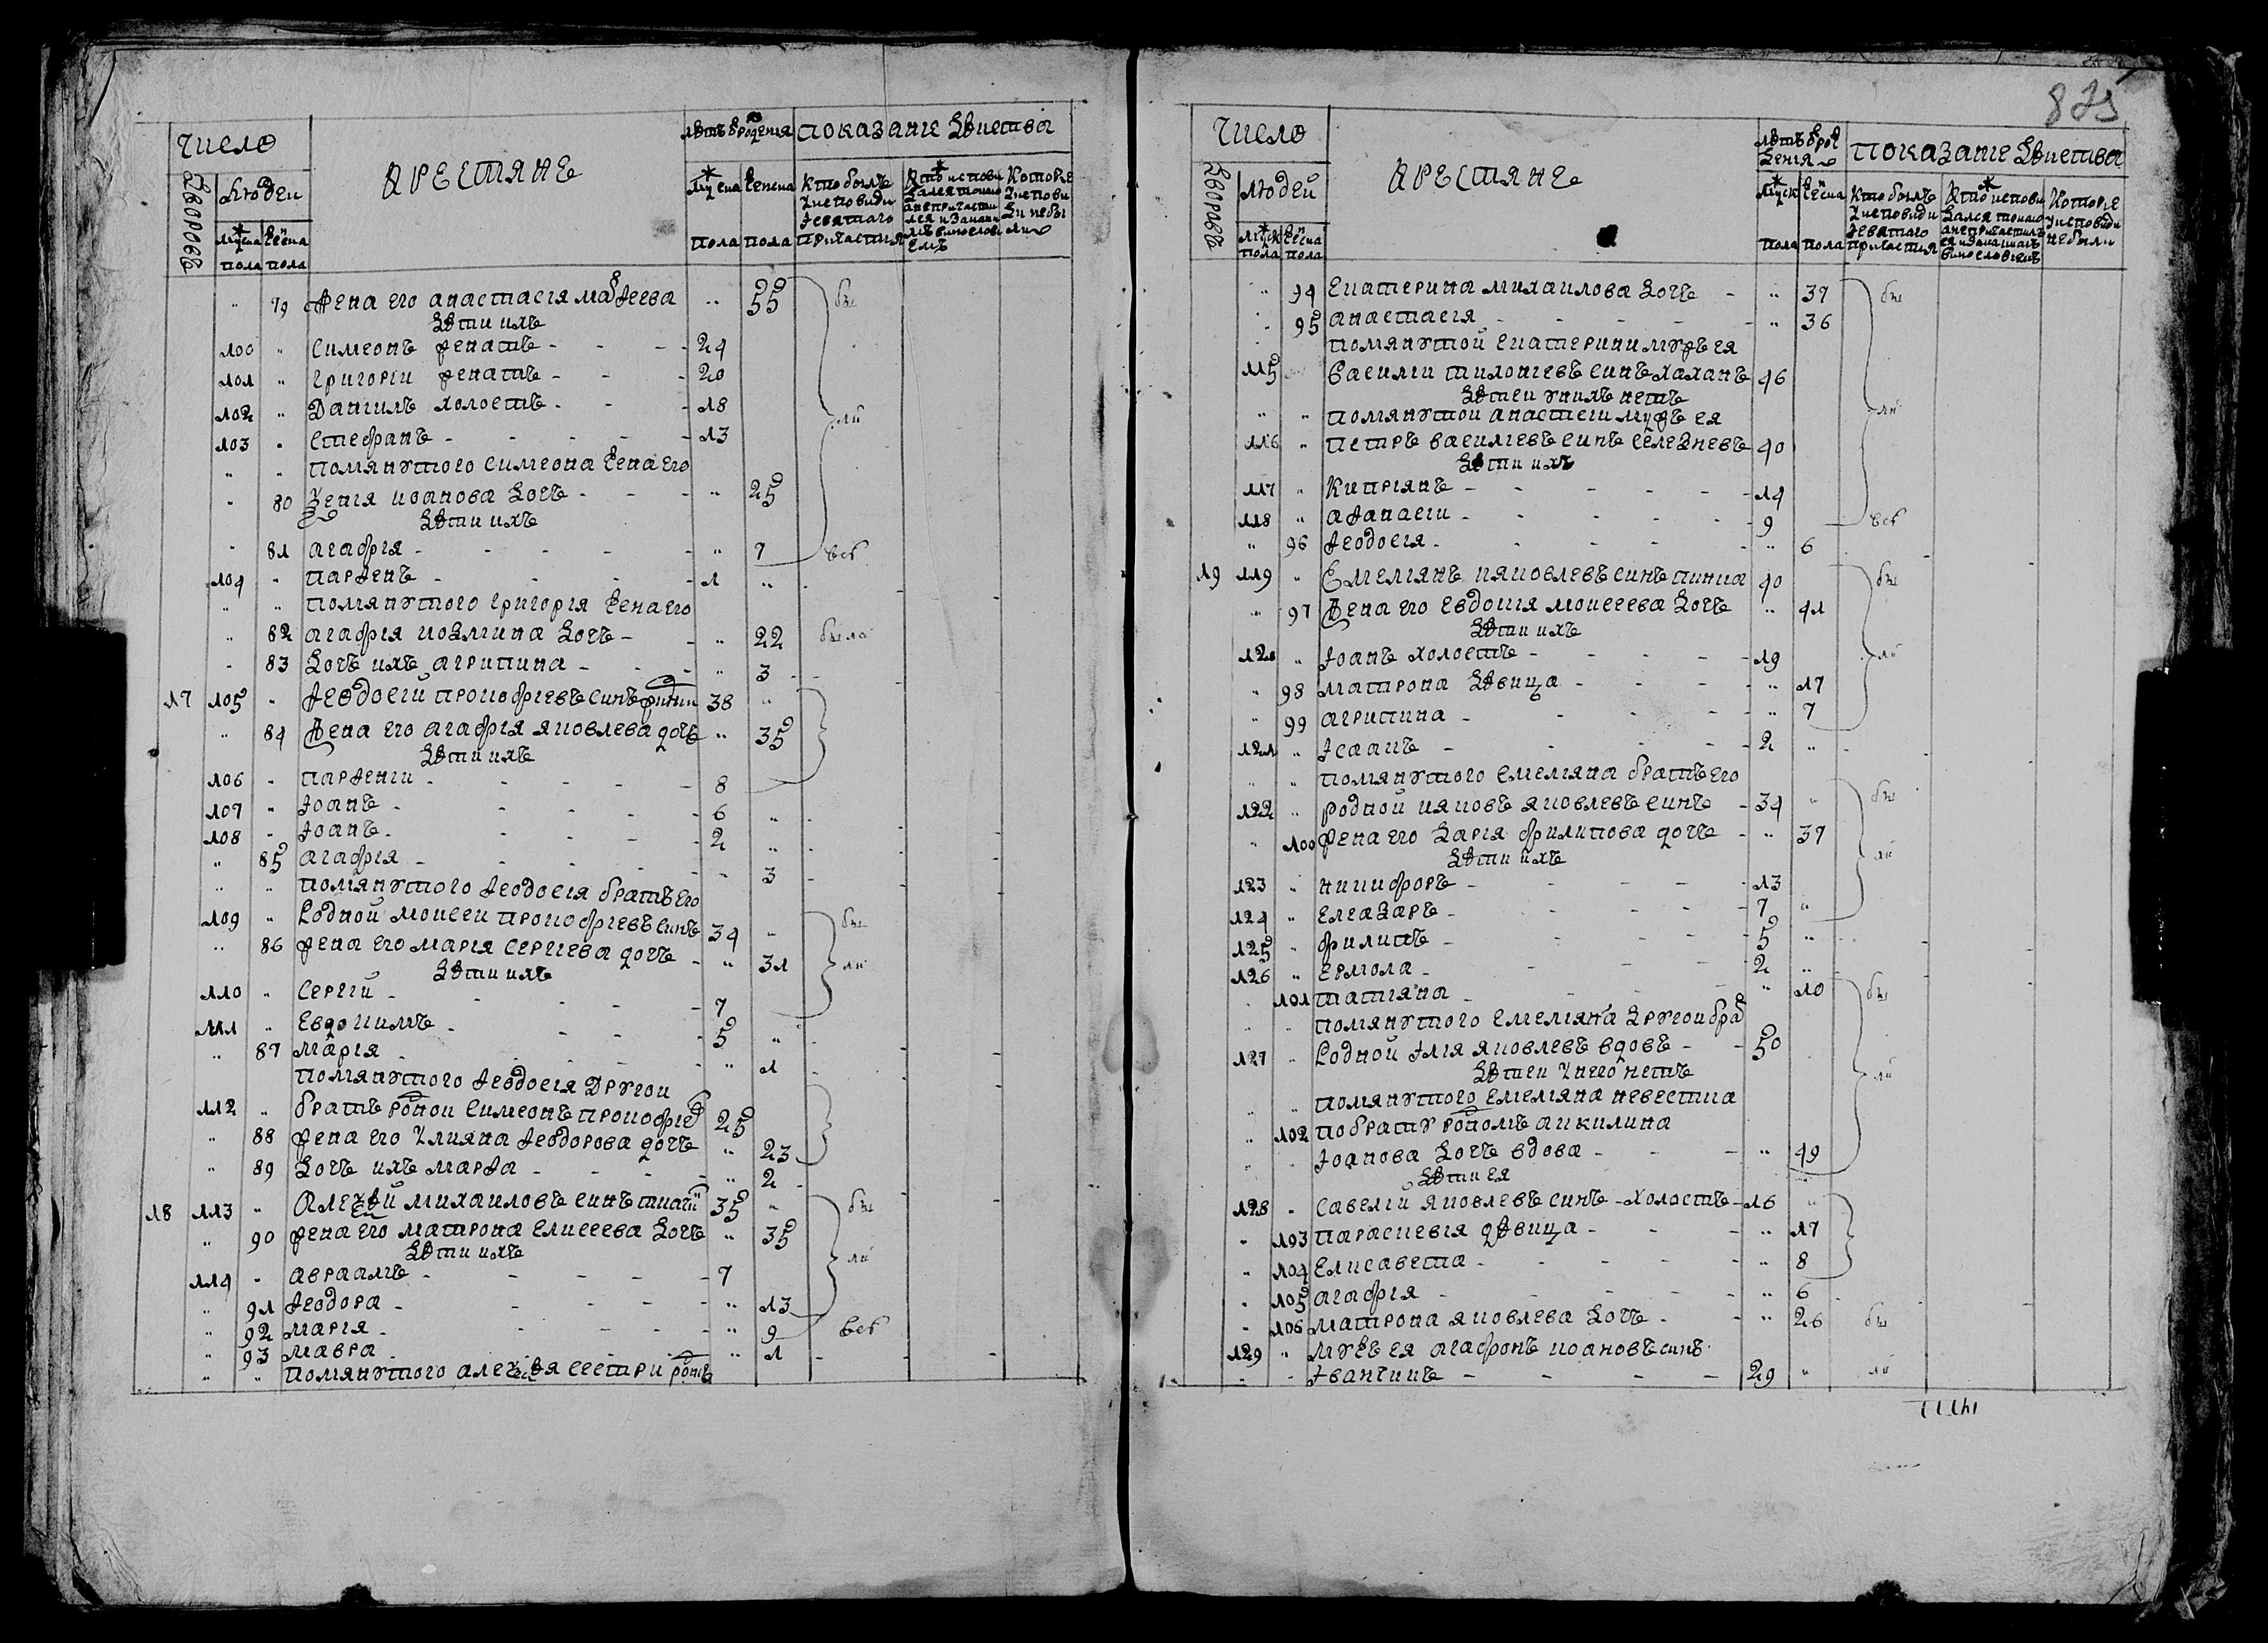 число
Дворовъ
Людей
мужска пола
женска пола
крестяне
лѣтъ ѿ рождения
мужска пола
женска пола
показание действа
Кто былъ у исповеди и святаго причастия
Кто исповедался токмо а не причастился и за каким винословиемъ
Которые у исповеди не были
" 79 Жена его анастасия матѳеева " 55 бы
дѣти ихъ
100 " Симеонъ женатъ 24
101 " Григории женатъ 20
102 " Данiилъ холостъ 18 ли
103 " Стефанъ 13
" " помянутого симеона жена его
" 80 Ксения иванова дочь " 25
дѣти ихъ
" 81 агафия " 7 всѣ
104 " парѳенъ 1 "
" " помянутого григория жена его
" 82 агафия козмина дочь " 22 была
" 83 дочь ихъ агрипина " 3
17 105 " Ѳеодосий прокофиевъ синъ 38 "
" 84 Жена его агафия яковлева дочь " 35
дѣти ихъ
106 " парѳении 8
107 " Iоанъ 6 "
108 " Iоанъ 2 "
" 85 агафия " 3
" " помянутого ѳеодосия братъ его
109 " Родной моисеи прокофиевъ синъ 34 " бы
" 86 жена его мария сергиева дочь " 31 ли
дѣти ихъ
110 " Сергий 7
111 " Евдокимъ 5 "
" 87 мария " 1
помянутого ѳеодосия другои
112 " братъ родной симеонъ прокофиев 25
" 88 жена его улияна ѳеодорова дочь " 23
" 89 дочь ихъ марѳа " 2
18 113 " Алексѣй михаиловъ синъ 35 " бы
" 90 жена его матрона елисеева дочь " 35
дѣти ихъ ли
114 " авраамъ 7
" 91 ѳеодора " 13
" 92 мария " 9 всѣ
" 93 мавра " 1
" " помянутого алексѣя сестри родние
875
число
Дворовъ
людей
мужск пола
женска пола
крестяне
лѣтъ ѿ рождения
мужск пола
женска пола
показание действа
Кто былъ у исповеди и святаго причастия
Кто исповедался токмо а не причастился и за каким винословиемъ
Которые у исповеди не были
" 94 Екатерина михаилова дочь " 37 бы
" 95 анастасия " 36
помянутой екатерини мужъ ея
115 Василии тихониевъ синъ хаханъ 46
дѣтеи у нихъ нетъ
" " помянутой анастасии мужъ ея ли
116 " петръ василиевъ синъ селезневъ 40
дѣти ихъ
117 " Киприянъ 14
118 " аѳанасии 9 всѣ
" 96 ѳеодосия " 6
19 119 " Емелиянъ ияковлевъ синъ пинка 40 бы
" 97 Жена его евдокия моисеева дочь " 41
дѣти ихъ
120 " Iоанъ холостъ 19 ли
" 98 матрона дѣвица " 17
" 99 агрипина " 7
121 " Iсаакъ 2 "
" " помянутого емелияна братъ его
122 " родной ияковъ яковлевъ синъ 34 " бы
" 100 жена его дария филипова дочь " 37
дѣти ихъ ли
123 " никифоръ 13
124 " елеазаръ 7 "
125 " филипъ 5 "
126 " ермола 2 "
" 101 татияна " 10 бы
" " помянутого емелияна другои брат
127 " Родной Iлия яковлевъ вдовъ 50
дѣтеи у него нетъ ли
" " помянутого емелияна невестка
" 102 по брату родномъ акилина
" " Iоанова дочь вдова " 49
дѣти ея
128 " Савелий яковлевъ синъ холостъ 16 "
" 103 параскевия дѣвица " 17
" 104 Елисавета " 8
" 105 агафия " 6
" 106 матрона яковлева дочь " 26 бы
129 " мужъ ея агафонъ иоановъ синъ
" " Iванчинъ 29 " ли